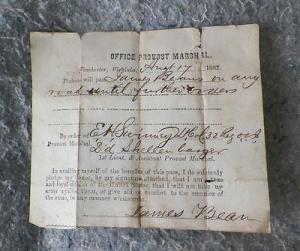 OFFICE PROVOST MARSHAL,
Winchester, Virginia, Augt 14 1862
Please will pass James Beans on any
road until further orders
By order of
Provost Marshal.
1st Lieut. & Assistant Provost Marshal.
In availing myself of the benefits of this pass, I do solemnly
pledge my honor, by my signature attached, that I am a true
and loyal citizen of the United States, that I will not take up
arms against them, or give aid or comfort to the enemies of
the same, in any manner whatsoever.
James Bean